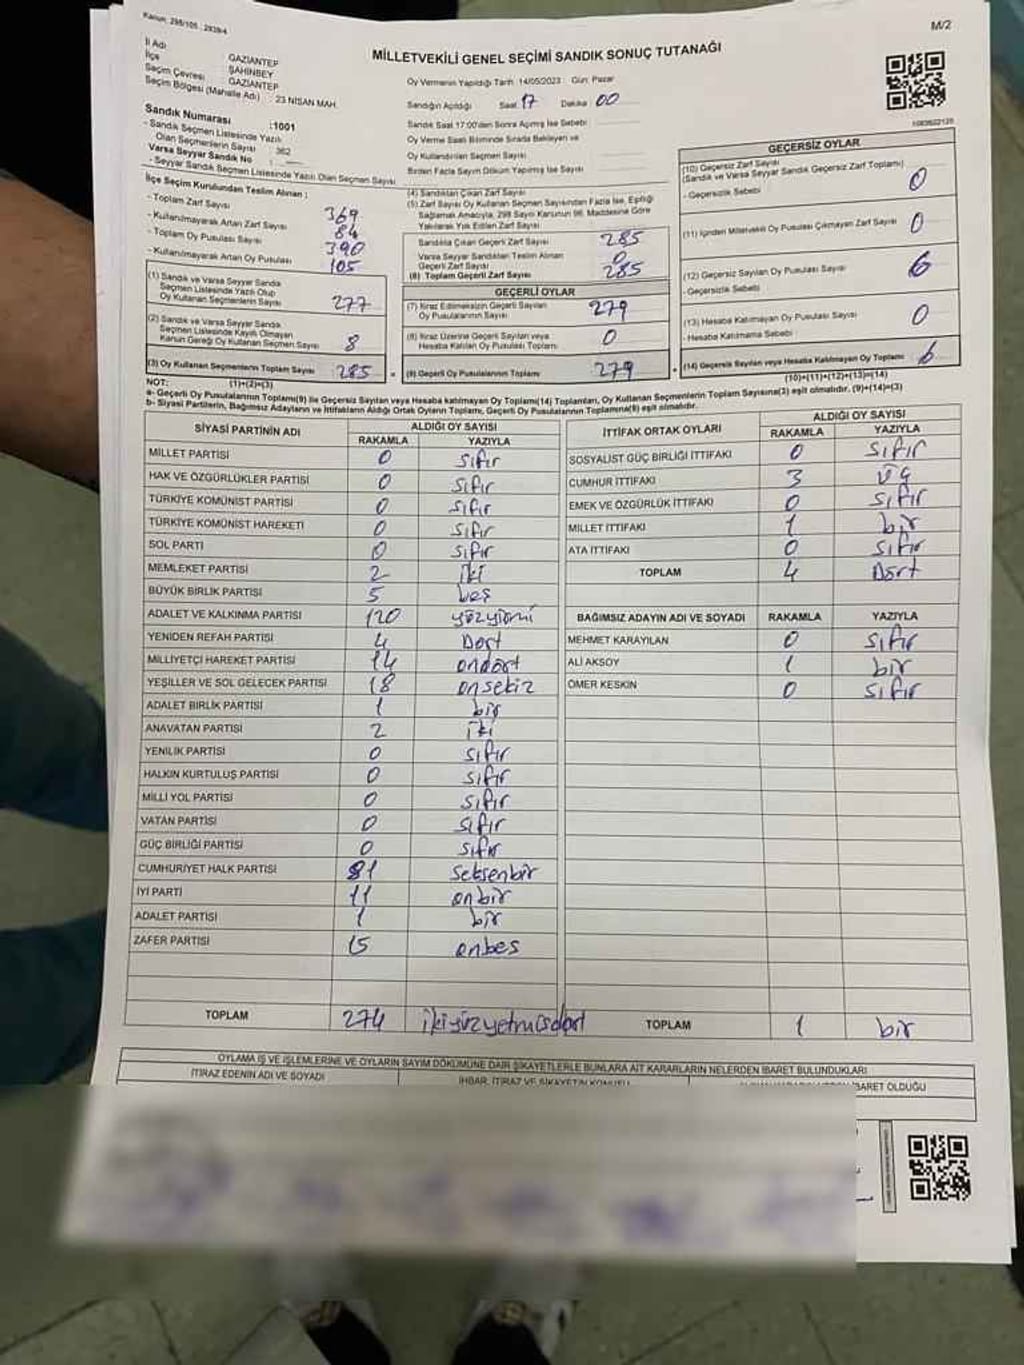 Kanun: 298/105 ; 2839/4
M/2
MİLLETVEKİLİ GENEL SEÇİMİ SANDIK SONUÇ TUTANAĞI
İl Adı GAZİANTEP
İlçe ŞAHİNBEY
Seçim Çevresi GAZİANTEP
Seçim Bölgesi (Mahalle Adı) : 23 NİSAN MAH.
Sandık Numarası :1001
- Sandık Seçmen Listesinde Yazılı
Olan Seçmenlerin Sayısı : 362
Varsa Seyyar Sandık No :
- Seyyar Sandık Seçmen Listesinde Yazılı Olan Seçmen Sayısı
İlçe Seçim Kurulundan Teslim Alınan :
- Toplam Zarf Sayısı 369
- Kullanılmayarak Artan Zarf Sayısı 84
- Toplam Oy Pusulası Sayısı 390
- Kullanılmayarak Artan Oy Pusulası 105
(1) Sandık ve Varsa Seyyar Sandık
Seçmen Listesinde Yazılı Olup
Oy Kullanan Seçmenlerin Sayısı 277
(2) Sandık ve Varsa Seyyar Sandık
Seçmen Listesinde Kayıtlı Olmayan
Kanun Gereği Oy Kullanan Seçmen Sayısı 8
(3) Oy Kullanan Seçmenlerin Toplam Sayısı 285
(1)+(2)=(3)
Oy Vermenin Yapıldığı Tarih :14/05/2023 Gün: Pazar
Sandığın Açıldığı Saat: 17 Dakika 00
Sandık Saat 17:00'den Sonra Açılmış İse Sebebi
Oy Verme Saati Bitiminde Sırada Bekleyen ve
Oy Kullandırılan Seçmen Sayısı
Birden Fazla Sayım Döküm Yapılmış İse Sayısı
(4) Sandıktan Çıkan Zarf Sayısı
(5) Zarf Sayısı Oy Kullanan Seçmen Sayısından Fazla İse, Eşitliği
Sağlamak Amacıyla, 298 Sayılı Kanunun 98. Maddesine Göre
Yakılarak Yok Edilen Zarf Sayısı
Sandıkta Çıkan Geçerli Zarf Sayısı 285
Varsa Seyyar Sandıktan Teslim Alınan
Geçerli Zarf Sayısı 0
(6) Toplam Geçerli Zarf Sayısı 285
GEÇERLİ OYLAR
(7) İtiraz Edilmeksizin Geçerli Sayılan
Oy Pusulalarının Sayısı 279
(8) İtiraz Üzerine Geçerli Sayılan veya
Hesaba Katılan Oy Pusulası Toplamı 0
(9) Geçerli Oy Pusulalarının Toplamı 279
GEÇERSİZ OYLAR
(10) Geçersiz Zarf Sayısı
(Sandık ve Varsa Seyyar Sandık Geçersiz Zarf Toplamı) 0
- Geçersizlik Sebebi
(11) İçinden Milletvekili Oy Pusulası Çıkmayan Zarf Sayısı 0
(12) Geçersiz Sayılan Oy Pusulası Sayısı 6
- Geçersizlik Sebebi
(13) Hesaba Katılmayan Oy Pusulası Sayısı 0
- Hesaba Katılmama Sebebi
(14) Geçersiz Sayılan veya Hesaba Katılmayan Oy Toplamı 6
(10)+(11)+(12)+(13)=(14)
NOT:
a- Geçerli Oy Pusulasının Toplamı(9) ile Geçersiz Sayılan veya Hesaba Katılmayan Oy Toplamı(14) Toplamları, Oy Kullanan Seçmenlerin Toplam Sayısına(3) eşit olmalıdır. (9)+(14)=(3)
b- Siyasi Partilerin, Bağımsız Adayların ve İttifakların Aldığı Ortak Oyların Toplamı, Geçerli Oy Pusulalarının Toplamına(9) eşit olmalıdır.
SİYASİ PARTİNİN ADI ALDIĞI OY SAYISI
RAKAMLA YAZIYLA
MİLLET PARTİSİ 0 sıfır
HAK VE ÖZGÜRLÜKLER PARTİSİ 0 sıfır
TÜRKİYE KOMÜNİST PARTİSİ 0 sıfır
TÜRKİYE KOMÜNİST HAREKETİ 0 sıfır
SOL PARTİ 0 sıfır
MEMLEKET PARTİSİ 2 iki
BÜYÜK BİRLİK PARTİSİ 5 beş
ADALET VE KALKINMA PARTİSİ 120 yüzyirmi
YENİDEN REFAH PARTİSİ 4 Dört
MİLLİYETÇİ HAREKET PARTİSİ 14 ondört
YEŞİLLER VE SOL GELECEK PARTİSİ 18 onsekiz
ADALET BİRLİK PARTİSİ 1 bir
ANAVATAN PARTİSİ 2 iki
YENİLİK PARTİSİ 0 sıfır
HALKIN KURTULUŞ PARTİSİ 0 sıfır
MİLLİ YOL PARTİSİ 0 sıfır
VATAN PARTİSİ 0 sıfır
GÜÇ BİRLİĞİ PARTİSİ 0 sıfır
CUMHURİYET HALK PARTİSİ 81 seksenbir
İYİ PARTİ 11 onbir
ADALET PARTİSİ 1 bir
ZAFER PARTİSİ 15 onbeş
TOPLAM 274 ikiyüzyetmişdört
İTTİFAK ORTAK OYLARI ALDIĞI OY SAYISI
RAKAMLA YAZIYLA
SOSYALİST GÜÇ BİRLİĞİ İTTİFAKI 0 sıfır
CUMHUR İTTİFAKI 3 üç
EMEK VE ÖZGÜRLÜK İTTİFAKI 0 sıfır
MİLLET İTTİFAKI 1 bir
ATA İTTİFAKI 0 sıfır
TOPLAM 4 Dört
BAĞIMSIZ ADAYIN ADI VE SOYADI RAKAMLA YAZIYLA
MEHMET KARAYILAN 0 sıfır
ALİ AKSOY 1 bir
ÖMER KESKİN 0 sıfır
TOPLAM 1 bir
OYLAMA İŞ VE İŞLEMLERİNE VE OYLARIN SAYIM DÖKÜMÜNE DAİR ŞİKAYETLERLE BUNLARA AİT KARARLARIN NELERDEN İBARET BULUNDUKLARI
İTİRAZ EDENİN ADI VE SOYADI
İHBAR, İTİRAZ VE ŞİKAYETİN KONUSU
İBARET OLDUĞU